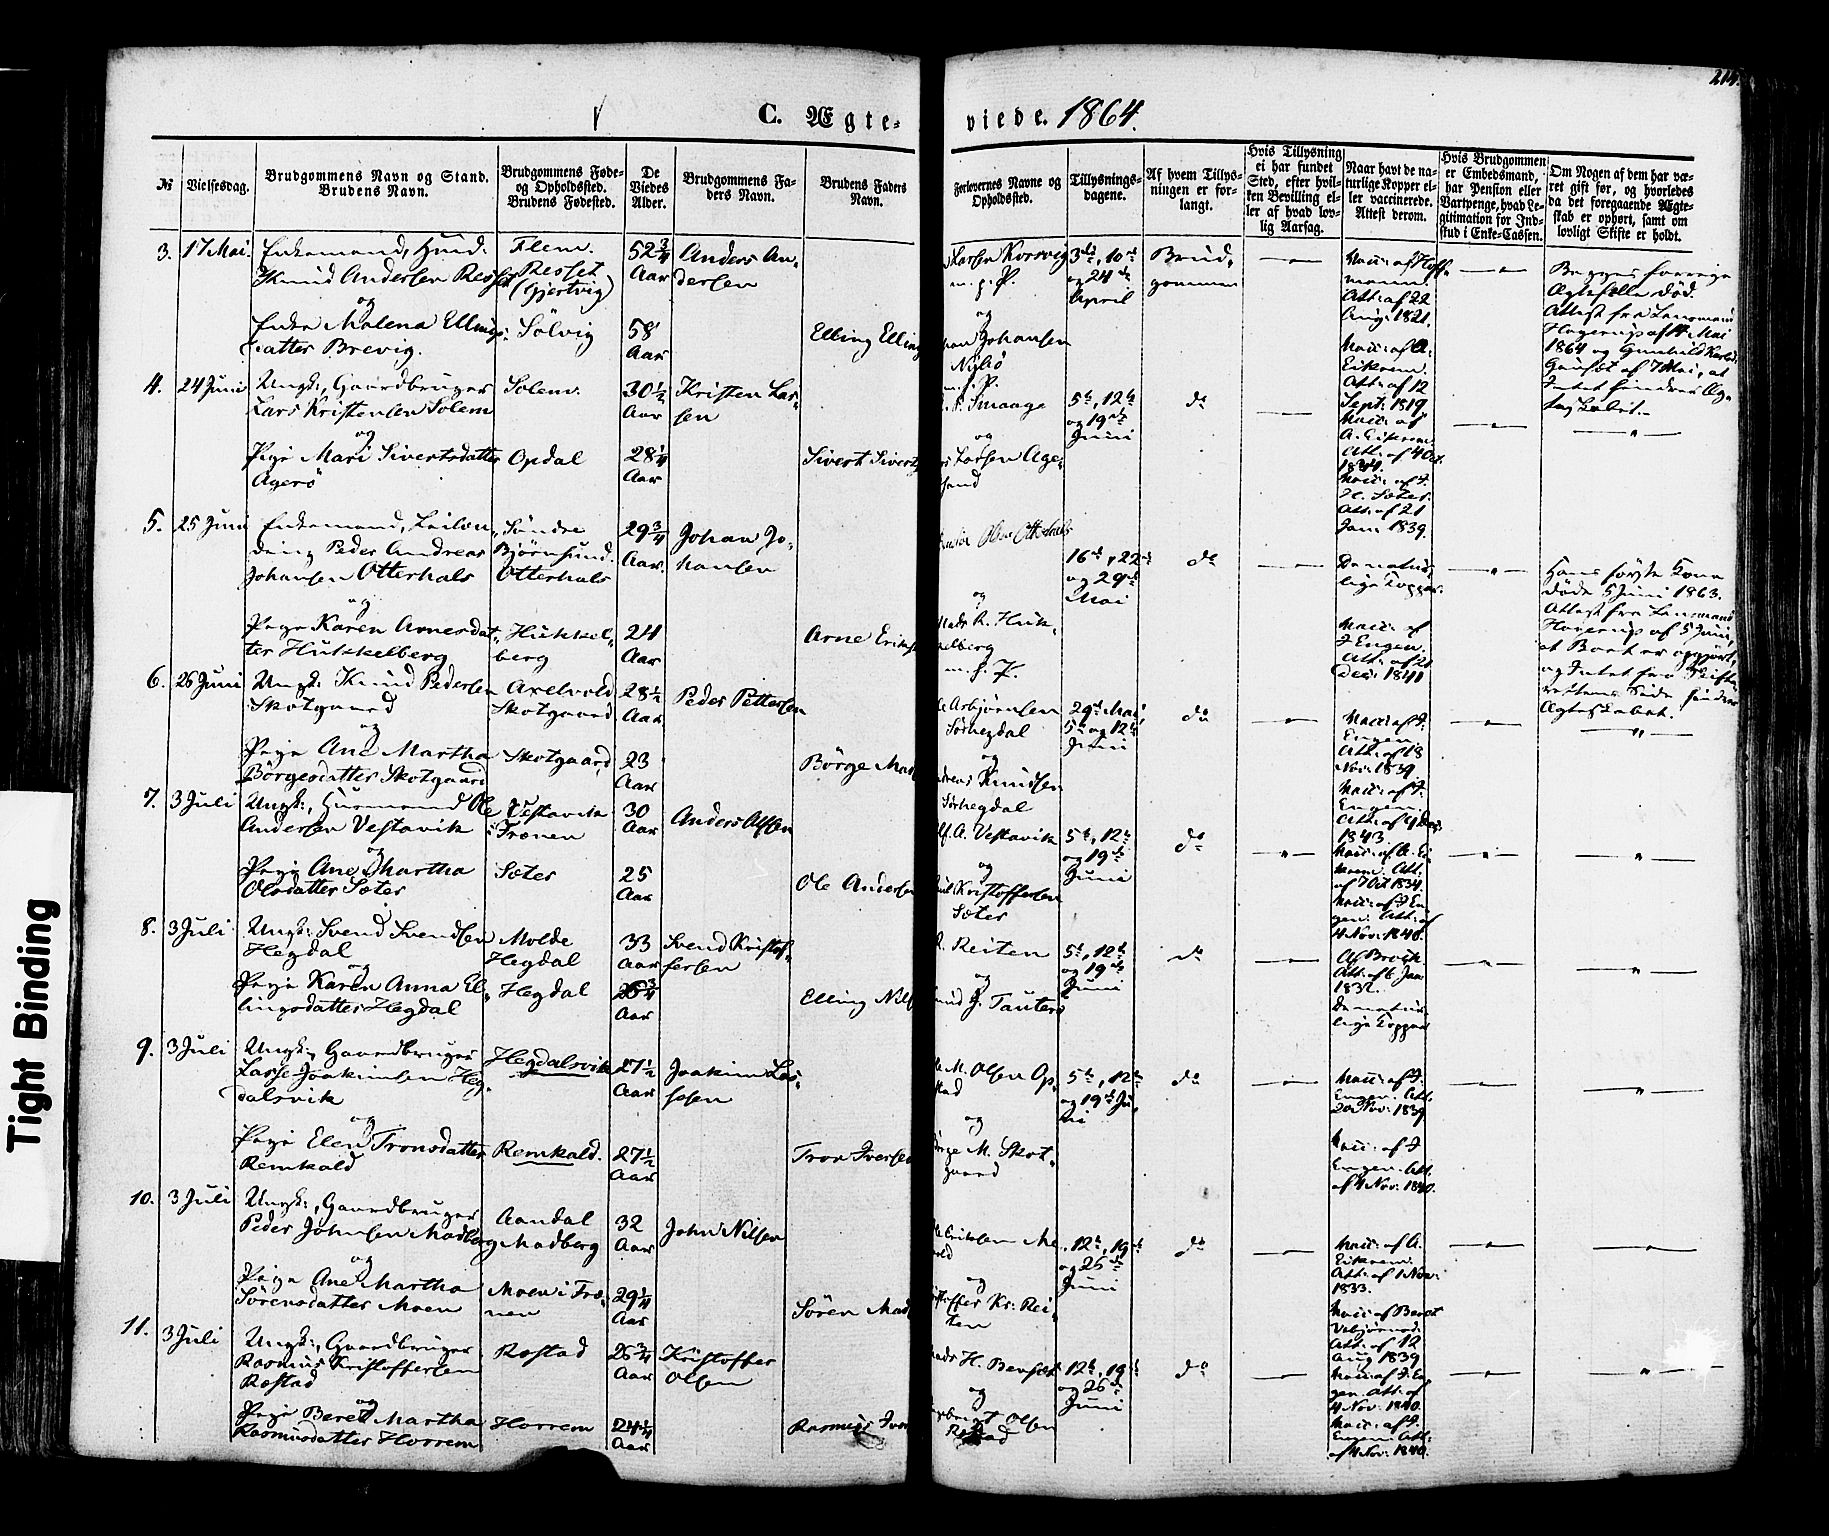 214.
C. Ægte-
viede. 1864.
№
Vielsesdag.
Brudgommens Navn og Stand.
Brudens Navn.
Brudgommens Føde-
og Opholdssted.
Brudens Fødested.
De
Viedes
Alder.
Brudgommens Fa-
ders Navn.
Brudens Faders
Navn.
Forlovernes Navne og
Opholdssted.
Tillysnings-
dagene.
Af hvem Tillys-
ningen er for-
langt.
Hvis Tillysning
ei har fundet
Sted, efter hvil-
ken Bevilling el-
ler af hvad lov-
lig Aarsag.
Naar havt de na-
turlige Kopper el-
ler vaccinerede.
Attest derom.
Hvis Brudgommen
er Embedsmand,
har Pension eller
Vartpenge, hvad Le-
gitimation for Ind-
skud i Enke-Cassen.
Om Nogen af dem har væ-
ret gift før, og hvorledes
da det foregaaende Ægte-
skab er ophørt, samt om
lovligt Skifte er holdt.
3. 17 Mai.
Enkemand, Huusm.
Knud Andersen Resset
og
Enke Malena Ellings-
datter Brevig.
Flem.
Resset
(Gjertvig)
Sølvig
52 3/4
Aar
58
Aar
Anders An-
dersen
Elling Elling
Larsen Korsvig
m. f. P.
og
Johansen
Nylø
m. f. P.
3die, 10de
og 24de
April
Brud-
gommen
Vacc: af Hoff-
mann.
Att: af 22
Aug: 1821.
Vacc: af A.
Eikrem.
Att: af 12
Sept: 1819
Begges forrige
Ægtefælle død.
Attest fra Lensmand
Hagerup af 7. Mai
1864 og Gunhild
af 7 Mai, at
Intet hindrer Æg-
teskabet.
4. 24 Juni
Ungk:, Gaardbruger
Lars Kristensen Solem
og
Pige Mari Sivertsdatter
Agerø
Solem.
Opdal
30 1/2
Aar
28 1/4
Aar
Kristen Lar-
sen
Sivert Siverts
Smaage
og
Larsen Age-
sand
5te, 12te
og 19de
Juni
do
Vacc: af
A. Eikrem.
Att: af 4 Oct.
1834.
Vacc: af J.
H. Sæter.
Att: af 21
Jan: 1839.
5. 25 Juni
Enkemand, Leilæn-
ding Peder Andreas
Johansen Otterhals
og
Pige Karen Arnesdat-
ter Hukkelberg
Søndre
Bjørnsund.
Otterhals
Hukkel-
berg
29 3/4
Aar.
24
Aar
Johan Jo-
hansen
Arne Eriks
Olsen Otterhals
og
Mads R. Huk-
kelberg
m. f. P.
16de, 22de
og 29de
Mai
do
De natur-
lige Kopper.
Vacc: af
J Engen.
Att: af 21
Dec: 1841
Hans første Kone
døde 5 Juni 1863.
Attest fra Lensmand
Hagerup af 5 Juni,
at Boet er opgjort,
og Intet fra Skifte-
rettens Side hindrer
Ægteskabet.
6. 26 Juni
Ungk: Knud Pedersen
Skotgaard
og
Pige Ane Martha
Børgesdatter Skotgaard
Axelvold
Skotgaard
Skotgaard
28 1/2
Aar
23
Aar
Peder Pettersen
Børge Mads
Asbjørnsen
Sørhegdal
og
Knudsen
Sørhegdal
29de Mai,
5te og 12te
Juni
do
Vacc: af J.
Engen.
Att: af 18
Nov: 1839
Vacc: af J.
Engen.
Att: af 9 Dec:
1843
7. 3 Juli
Ungk:, Huusmand Ole
Andersen Vestavik
og
Pige Ane Martha
Olsdatter Sæter
Vestavik
i Frænen
Sæter
30
Aar
25
Aar
Anders Olsen
Ole Andersen
A. Vestavik
og
Kristoffersen
Sæter
5te, 12te
og 19de
Juni
do
Vacc: af A. Ei-
krem. Att:
af 7 Oct 1834.
Vacc: af J En-
gen. Att: af
4 Nov: 1840.
8. 3 Juli
Ungk: Svend Svendsen
Hegdal
og
Pige Karen Anna El-
lingsdatter Hegdal
Molde
Hegdal
Hegdal
33
Aar
Aar
Svend Kristof-
fersen
Elling Nils
Reiten
og
J. Tautern
5te, 12te
og 19de
Juni
do
Af Brock.
Att: af 6 Jan
1832.
De natur-
lige Kopper
9. 3 Juli
Ungk:, Gaardbruger
Lasse Joakimsen Heg-
dalsvik
og
Pige Elen Tronsdatter
Remkald
Hegdalsvik
Remkald.
27 1/2
Aar
27 1/2
Aar
Joakim Las-
sesen
Tron Iversen
M. Olsen Op-
stad
og
Børge M. Skot-
gaard
5te, 12te
og 19de Ju-
ni
do
Vacc: af J.
Engen. Att:
20 Nov: 1839
Vacc: af J
Engen. Att:
af 4 Nov: 1840.
10. 3 Juli
Ungk:, Gaardbruger
Peder Johnsen Madberg
og
Pige Ane Martha
Sørensdatter Moen
Aandal
Madberg
Moen i Fræ-
nen
32
Aar
29 1/4
Aar
John Nilsen
Søren Mad
Eriksen
og
Kr: Rei-
ten
12te, 19de
og 26de
Juni
do
Vacc: af A.
Eikrem.
Att: af 1 Nov:
1833.
Vacc: af Beret
Vebjørnsd.
Att: af 12
Aug 1839
11. 3 Juli
Ungk:, Gaardbruger
Rasmus Kristoffersen
Røstad
og
Pige Beret Martha
Rasmusdatter Horrem
Røstad
Horrem
26 3/4
Aar
24 1/4
Aar
Kristoffer
Olsen
Rasmus Iver
H. Bersaas
og
Olsen
Røstad
12te, 19de
og 26de
Juni
do
Vacc: af J. En-
gen. Att: af
4 Nov: 1840.
Vacc: af J.
Engen. Att:
af 4 Nov: 1840.
Tight Binding